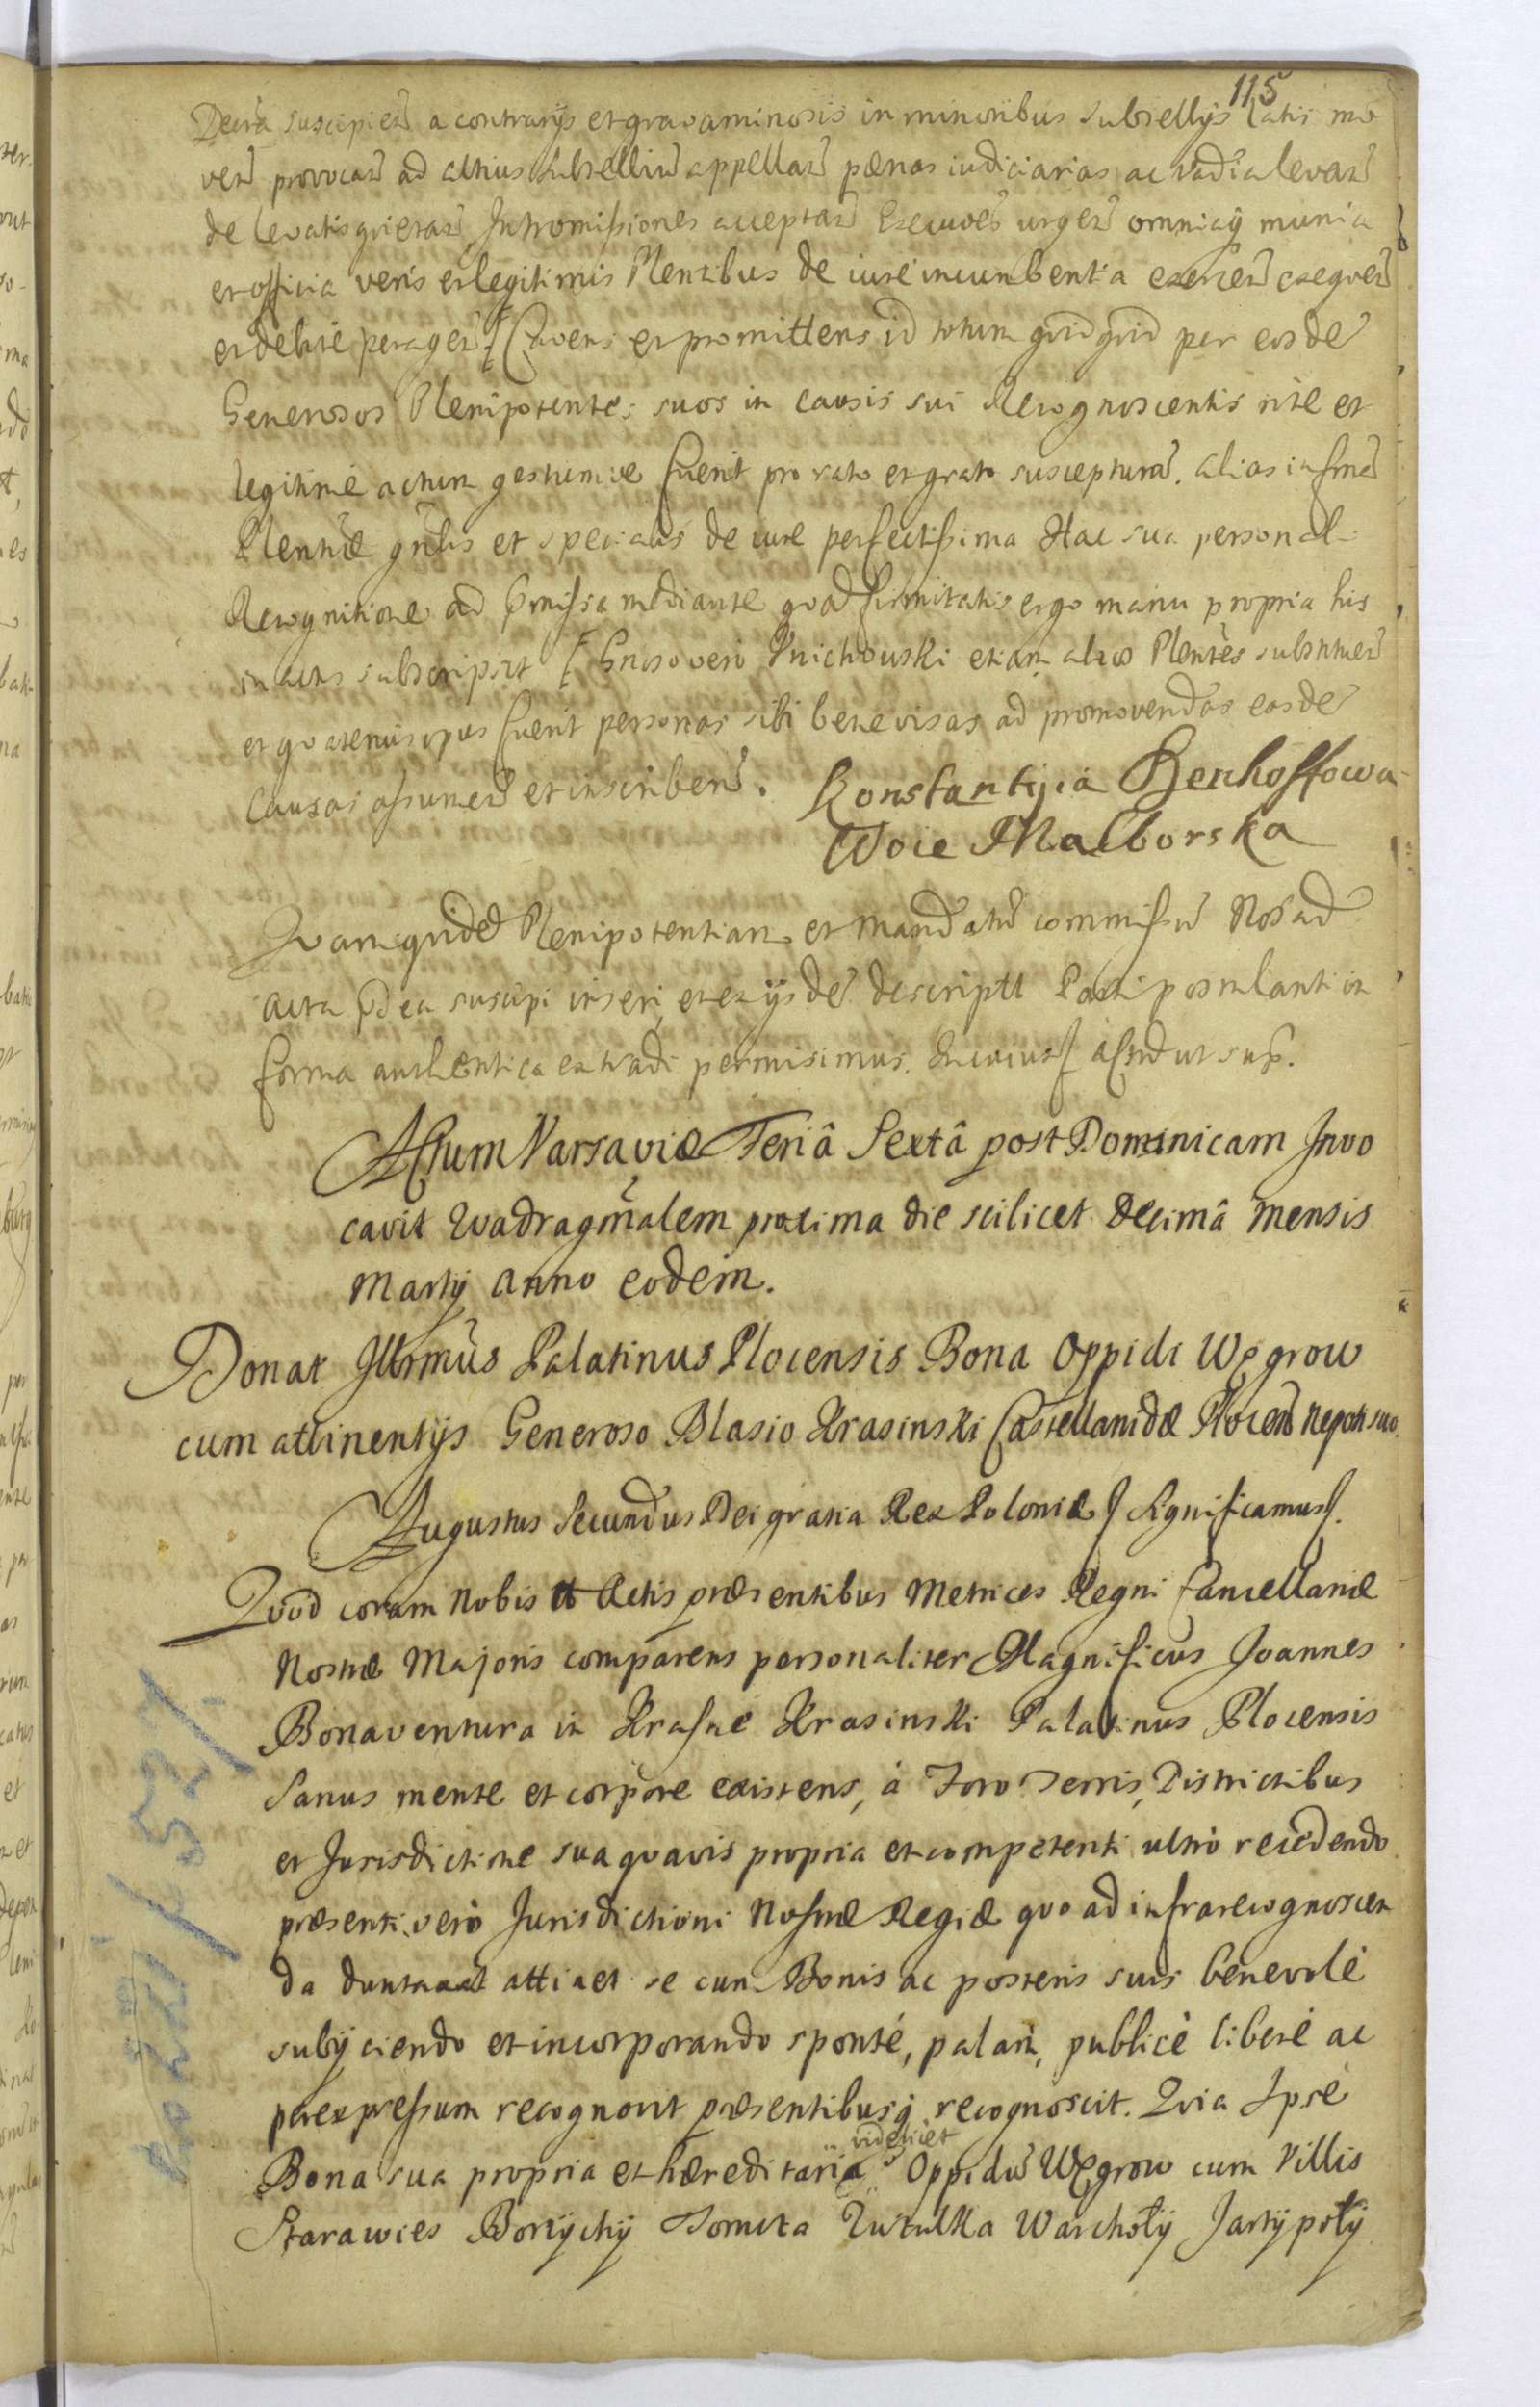 115
Decra suscipien a contrarijs et gravaminosis in minoribus Subsellijs latis mo
ven provocan ad altius subselliu appellan pænas iudiciarias ac vadia levan
de levatis quietan Intromissiones acceptan Execuoes urgen omniaq munia
et officia veris et legitimis Plentibus de iure incumbentia exercen exequen
et debite peragen Cavens et promittens id totum quidquid per eosde
Generosos Plenipotentes suos in causis sui Recognoscentis rite et
legitime actum gestumve fuerit pro rato et grato suscepturu. alias in forma
Plentiæ gnlis et specialis de iure perfectissima Hac sua personal
Recognitione ad pmissa mediante quod firmitatis ergo manu propria his
in actis subscripsit Gnoso vero Pnichowski etiam alios Plentes substituen
et quatenus opus fuerit personas sibi benevisas ad promovendas easde
causas assumen et inscriben.
Konstantyia Benhoffowa
Woie Malborska
Quam quide Plenipotentiam et Mandatu commissu Nos ad
Acta pdca suscipi inseri, et ex ijsde descriptt Parti postulanti in
forma authentica extradi permisimus. In cuius actu ut sup.
Actum Varsaviæ Feriâ Sextâ post Dominicam Invo
cavit Quadragmalem proxima die scilicet Decimâ Mensis
Martij Anno eodem.
Donat Illrmus Palatinus Plocensis Bona Oppidi Węgrow
cum attinentijs Generoso Blasio Krasinski Castellanidæ Plocen Nepoti suo.
Augustus Secundus Dei gratia Rex Poloniæ Significamus.
Quod coram Nobis et Actis præsentibus Metrices Regni Cancellariæ
Nostræ Majoris comparens personaliter Magnificus Joannes
Bonaventura in Krasne Krasinski Palatinus Plocensis
Sanus mente et corpore existens, à Foro Terris, Districtibus
et Jurisdictione sua quavis propria et competenti ultrò recedendo
præsenti verò Jurisdictioni Nostræ Regiæ quo ad infrarecognoscen
da duntaxat attinet se cum Bonis ac posteris suis benevolè
subijciendo et incorporando spontè, palam, publicè liberè ac
per expressum recognovit præsentibusq recognoscit. Quia Ipse
videlicet
Bona sua propria et hæreditaria Oppidu Węgrow cum Villis
Starawies Borÿchÿ Tomcza Warchołÿ Jartÿpołÿ